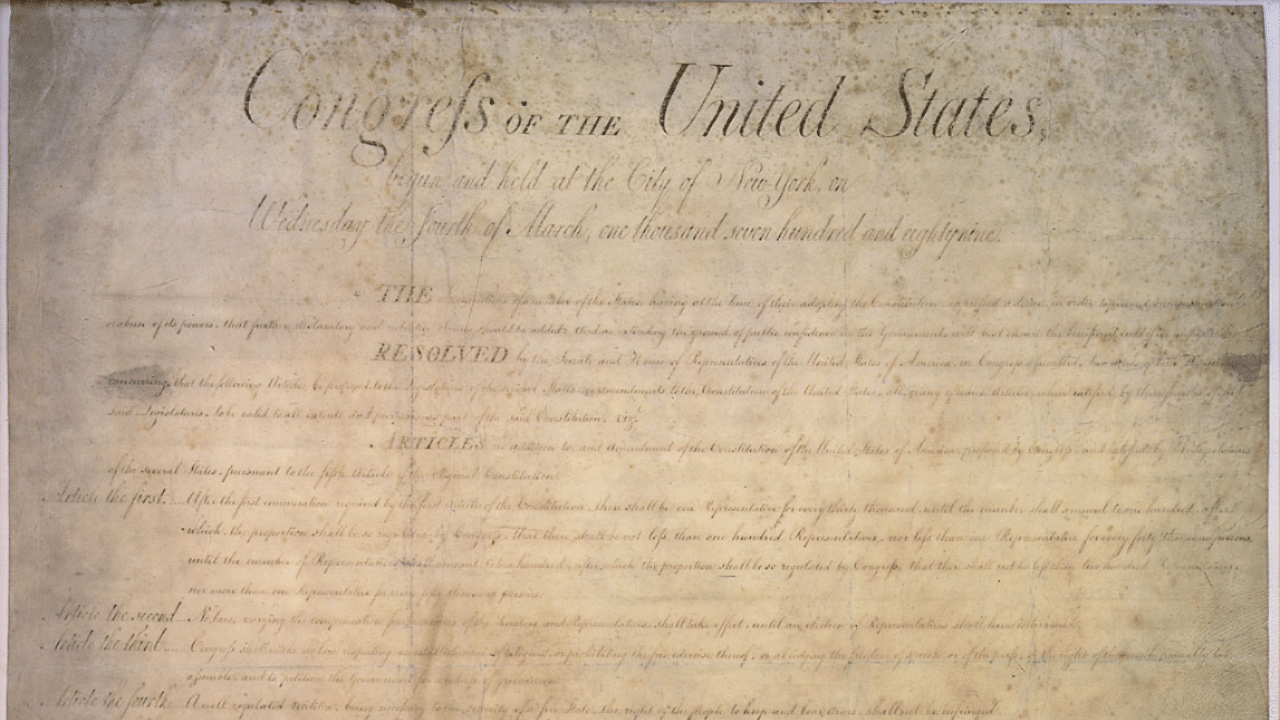 Congreſs OF THE United States,
begun and held at the City of New York, on
Wednesday the fourth of March, one thousand seven hundred and eighty nine.
THE of a number of the States, having at the time of their adopting the Constitution, expressed a desire, in order to prevent
or abuse of its powers, that further declaratory and restrictive clauses should be added: And as extending the ground of public confidence in the Government, will best ensure the beneficent ends of its
RESOLVED by the Senate and House of Representatives of the United States of America, in Congress assembled, two thirds of both Houses
concurring, that the following Articles be proposed to the Legislatures of the several States, as amendments to the Constitution of the United States, all, or any of which Articles, when ratified by three fourths of the
said Legislatures, to be valid to all intents and purposes, as part of the said Constitution; viz.t
ARTICLES in addition to, and Amendment of the Constitution of the United States of America, proposed by Congress, and ratified by the Legislatures
of the several States, pursuant to the fifth Article of the Original Constitution.
Article the first.... After the first enumeration required by the first Article of the Constitution, there shall be one Representative for every thirty thousand, until the number shall amount to one hundred, after
which, the proportion shall be so regulated by Congreſs, that there shall be not leſs than one hundred Representatives, nor leſs than one Representative for every forty thousand persons,
until the number of Representatives shall amount to two hundred, after which the proportion shall be so regulated by Congreſs, that there shall not be leſs than two hundred Representatives,
nor more than one Representative for every fifty thousand persons.
Article the second... No law, varying the compensation for the services of the Senators and Representatives, shall take effect, until an election of Representatives shall have intervened.
Article the third..... Congreſs shall make no law respecting an establishment of religion, or prohibiting the free exercise thereof; or abridging the freedom of speech, or of the preſs; or the right of the people peaceably to
aſsemble, and to petition the Government for a redreſs of grievances.
Article the fourth... A well regulated militia, being neceſsary to the security of a free State, the right of the people to keep and bear arms, shall not be infringed.